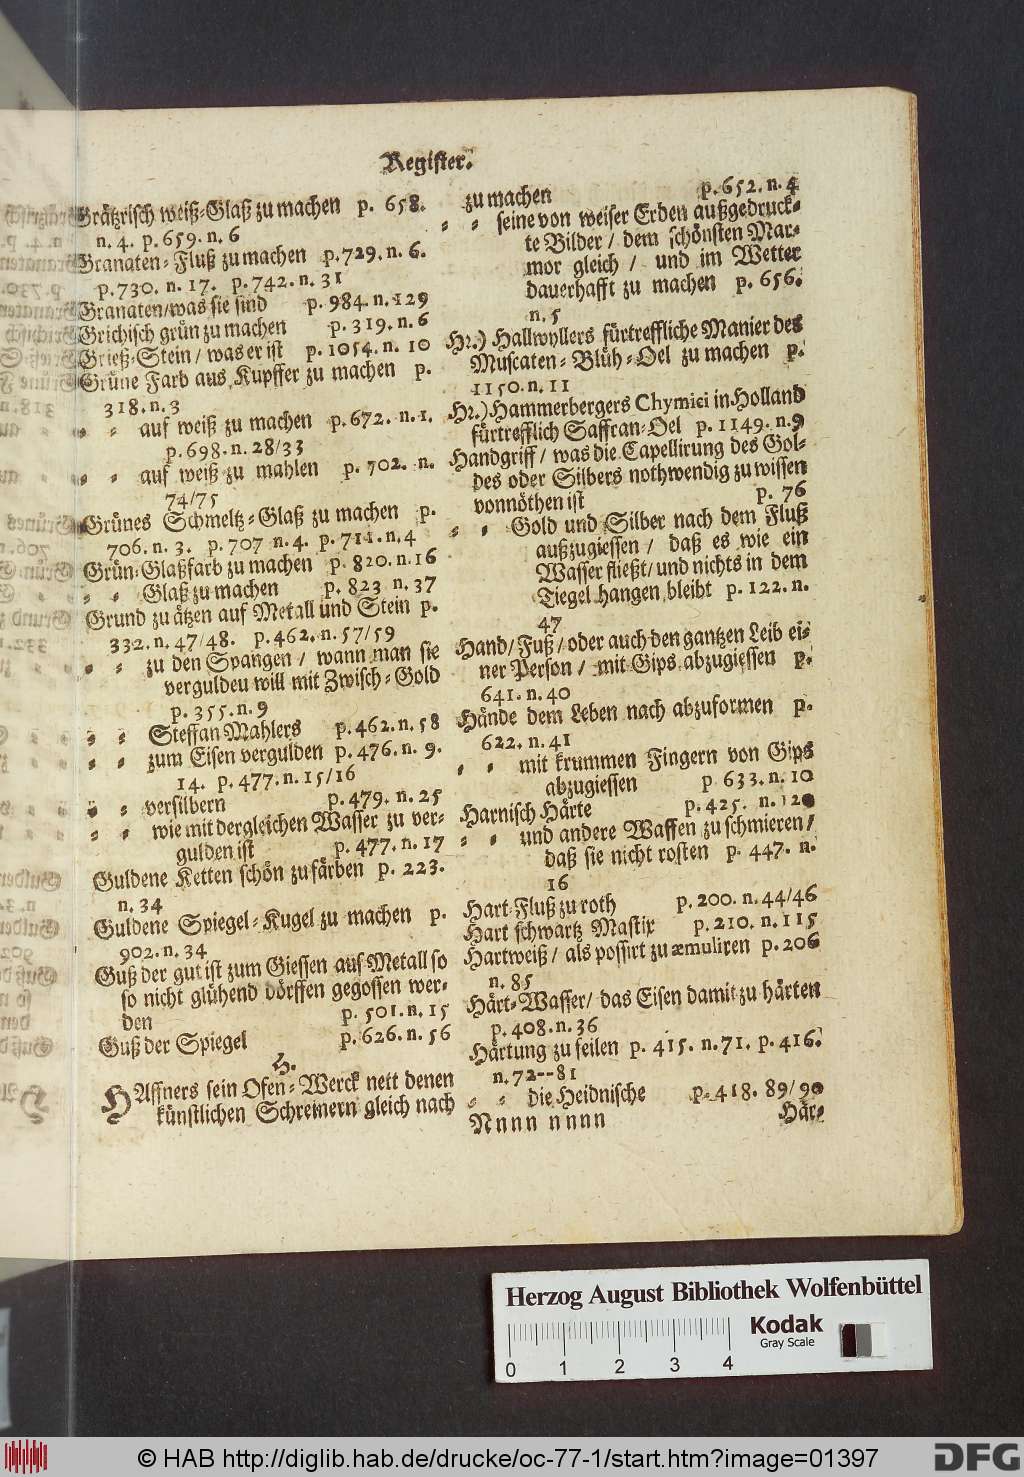 Register.
Grätzrisch weiß-Glaß zu machen p. 658.
n. 4. p. 659. n. 6
Granaten-Fluß zu machen p. 729. n. 6.
p. 730. n. 17. p. 742. n. 31
Granaten/was sie sind p. 984. n. 129
Grichisch grün zu machen p. 319. n. 6
Grieß-Stein / was er ist p. 1054. n. 10
Grüne Farb aus Kupffer zu machen p.
318. n. 3
- - auf weiß zu machen p. 672. n. 1.
p. 698. n. 28/33
- - auf weiß zu mahlen p. 702. n.
74/75
Grünes Schmeltz-Glaß zu machen p.
706. n. 3. p. 707 n. 4. p. 711. n. 4
Grün-Glaßfarb zu machen p. 820. n. 16
- - Glaß zu machen p. 823 n. 37
Grund zu ätzen auf Metall und Stein p.
332. n. 47/48. p. 462. n. 57/59
- - zu den Spangen / wann man sie
verguldeu will mit Zwisch-Gold
p. 355. n. 9
- - Steffan Mahlers p. 462. n. 58
- - zum Eisen vergulden p. 476. n. 9.
14. p. 477. n. 15/16
- - versilbern p. 479. n. 25
- - wie mit dergleichen Wasser zu ver-
gulden ist p. 477. n. 17
Guldene Ketten schön zu färben p. 223.
n. 34
Guldene Spiegel-Kugel zu machen p.
902. n. 34
Guß der gut ist zum Giessen auf Metall so
so nicht glühend dörffen gegossen wer-
den p. 501. n. 15
Guß der Spiegel p. 626. n. 56
H.
HAffners sein Ofen-Werck nett denen
künstlichen Schreinern gleich nach
zu machen p. 652. n. 4
- - seine von weiser Erden außgedruck-
te Bilder / dem schönsten Mar-
mor gleich / und im Wetter
dauerhafft zu machen p. 656.
n. 5
Hr.) Hallwyllers fürtreffliche Manier des
Muscaten-Blüh-Oel zu machen p.
1150. n. 11
Hr.) Hammerbergers Chymici in Holland
fürtrefflich Saffran-Oel p. 1149. n. 9
Handgriff / was die Capellirung des Gol-
des oder Silbers nothwendig zu wissen
vonnöthen ist p. 76
- - Gold und Silber nach dem Fluß
außzugiessen / daß es wie ein
Wasser fließt/ und nichts in dem
Tiegel hangen bleibt p. 122. n.
47
Hand/ Fuß/ oder auch den gantzen Leib ei-
ner Person / mit Gips abzugiessen p.
641. n. 40
Hände dem Leben nach abzuformen p.
622. n. 41
- - mit krummen Fingern von Gips
abzugiessen p 633. n. 10
Harnisch Härte p. 425. n. 120
- - und andere Waffen zu schmieren/
daß sie nicht rosten p. 447. n.
16
Hart-Fluß zu roth p. 200. n. 44/46
Hart schwartz Mastix p. 210. n. 115
Hartweiß/ als possirt zu æmuliren p. 206
n. 85
Härt-Wasser/ das Eisen damit zu härten
p. 408. n. 36
Härtung zu feilen p. 415. n. 71. p. 416.
n. 72--81
- - die Heidnische p. 418. 89/90
Nnnn nnnn Här-
Herzog August Bibliothek Wolfenbüttel
Kodak
Gray Scale
0 1 2 3 4
© HAB http://diglib.hab.de/drucke/oc-77-1/start.htm?image=01397
DFG